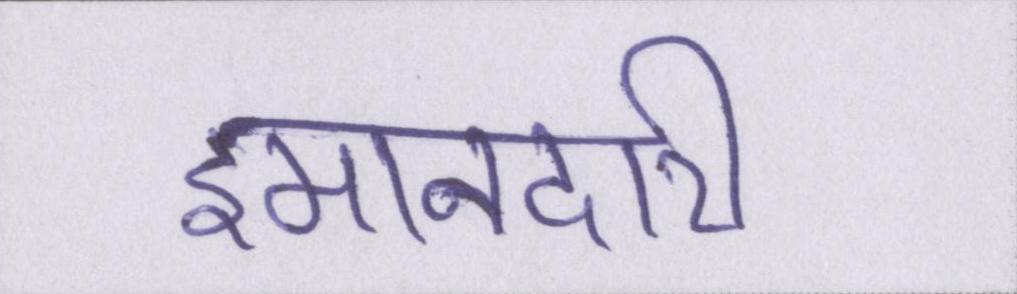 इमानदारी